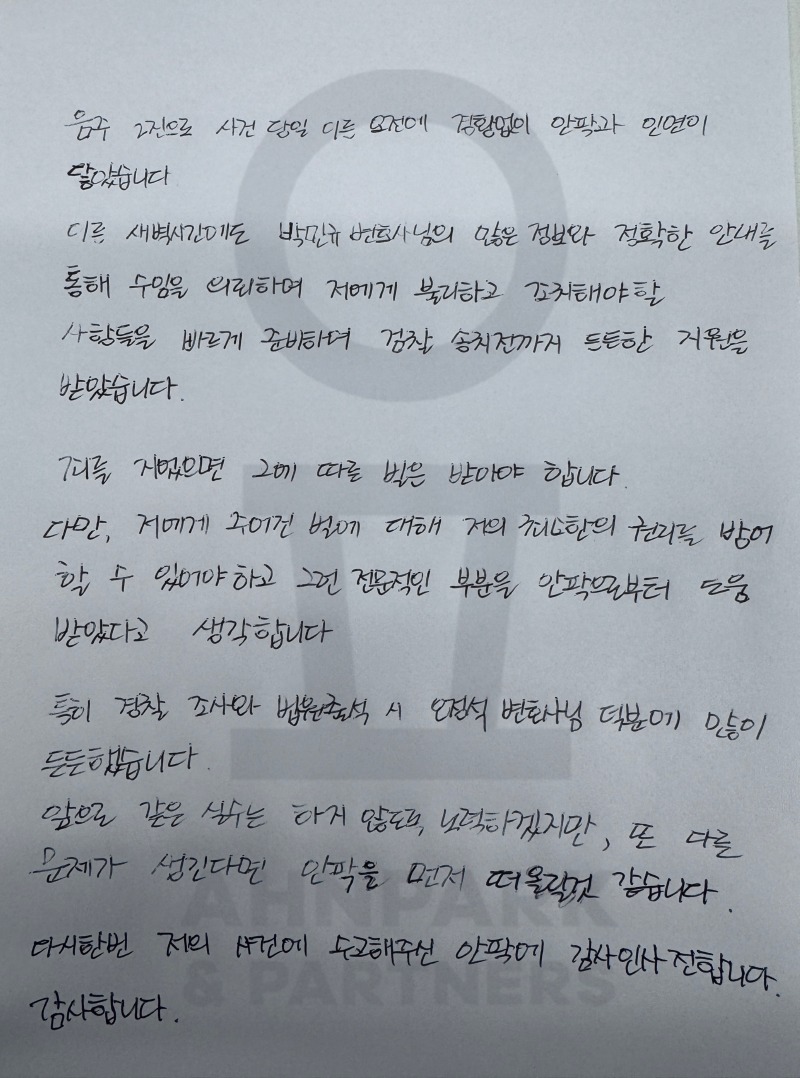 음주 2진으로 사건 당일 이른 오전에 경황없이 안팍과 인연이
닿았습니다
이른 새벽시간에도 박민규 변호사님의 많은 정보와 정확한 안내를
통해 수임을 의뢰하며 저에게 불리하고 조치해야할
사항들을 빠르게 준비하며 검찰 송치전까지 든든한 지원을
받았습니다.
죄를 지었으면 그에 따른 벌은 받아야 합니다.
다만, 저에게 주어진 벌에 대해 저의 최소한의 권리를 방어
할 수 있어야하고 그런 전문적인 부분을 안팍으로부터 도움
받았다고 생각합니다
특히 경찰 조사와 법원출석 시 오정석 변호사님 덕분에 많이
든든했습니다.
앞으로 같은 실수는 하지 않도록 노력하겠지만, 또 다른
문제가 생긴다면 안팍을 먼저 떠올릴것 같습니다.
AHNPARK
다시한번 저의 사건에 수고해주신 안팍에 감사인사 전합니다.
& PARTNERS
감사합니다.